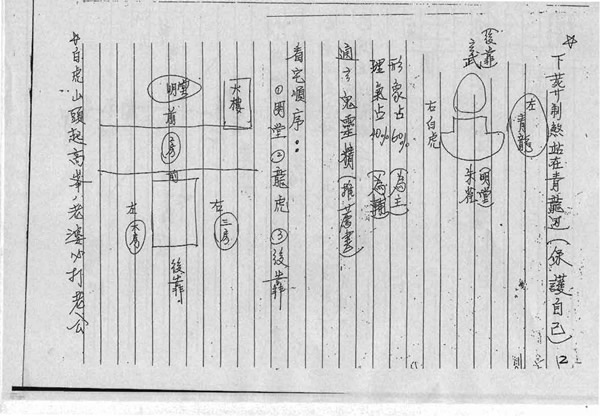 ☆下葬 制煞站在青龍边(保護自己) 12
後靠
玄武
左青龍
右白虎
明堂
朱雀
形象占60%(為主)
理氣占40%(為輔)
通玄鬼靈 (推荐書)
看宅順序:
①明堂②龍虎③後靠
水樓
明堂
前
二房
前
右三房
左大房
後靠
☆白虎山頭起高峯,老婆必打老公